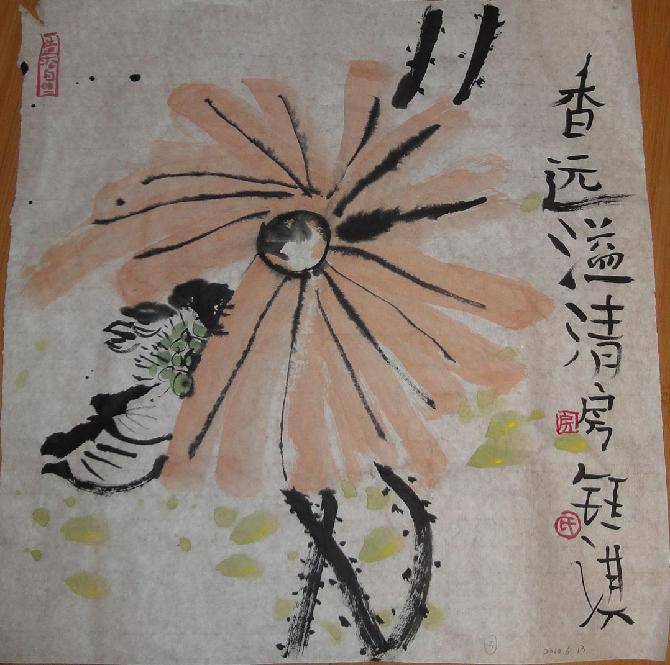 香远溢清房钰淇
2010.6.13